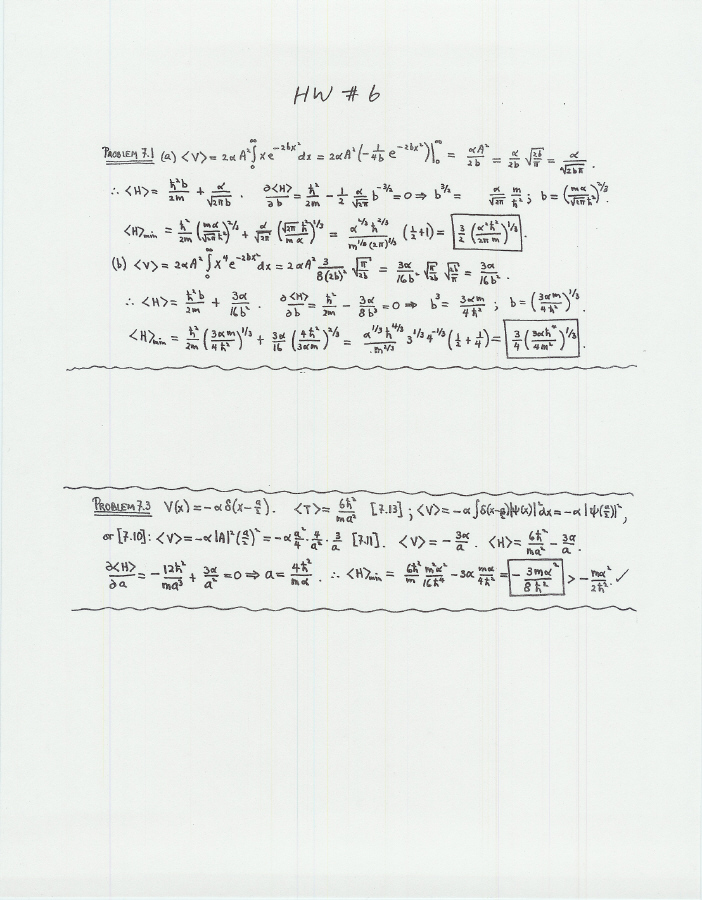 HW # 6
PROBLEM 7.1 (a) <V> = 2αA² ∫₀^∞ x e^{-2bx²} dx = 2αA² (-1/4b e^{-2bx²})|₀^∞ = αA²/2b = α/2b √(2b/π) = α/√(2bπ).
∴ <H> = ħ²b/2m + α/√(2πb). ∂<H>/∂b = ħ²/2m - 1/2 α/√(2π) b^{-3/2} = 0 ⇒ b^{3/2} = α/√(2π) m/ħ²; b = (mα/√(2π)ħ²)^{2/3}.
<H>min = ħ²/2m (mα/√(2π)ħ²)^{2/3} + α/√(2π) (√(2π)ħ²/mα)^{1/3} = α^{2/3}ħ^{2/3}/m^{1/3}(2π)^{1/3} (1/2+1) = 3/2 (α²ħ²/2πm)^{1/3}.
(b) <V> = 2αA² ∫₀^∞ x⁴ e^{-2bx²} dx = 2αA² 3/8(2b)² √(π/2b) = 3α/16b² √(π/2b) √(2b/π) = 3α/16b².
∴ <H> = ħ²b/2m + 3α/16b². ∂<H>/∂b = ħ²/2m - 3α/8b³ = 0 ⇒ b³ = 3αm/4ħ²; b = (3αm/4ħ²)^{1/3}.
<H>min = ħ²/2m (3αm/4ħ²)^{1/3} + 3α/16 (4ħ²/3αm)^{2/3} = α^{1/3}ħ^{4/3}/m^{2/3} 3^{1/3} 4^{-1/3} (1/2 + 1/4) = 3/4 (3αħ⁴/4m²)^{1/3}.
PROBLEM 7.3 V(x) = -αδ(x-a/2). <T> = 6ħ²/ma² [7.13]; <V> = -α∫δ(x-a/2)|ψ(x)|² dx = -α|ψ(a/2)|²,
or [7.10]: <V> = -α|A|²(a/2)² = -α a²/4 · 4/a² · 3/a [7.11]. <V> = -3α/a. <H> = 6ħ²/ma² - 3α/a.
∂<H>/∂a = -12ħ²/ma³ + 3α/a² = 0 ⇒ a = 4ħ²/mα. ∴ <H>min = 6ħ²/m m²α²/16ħ⁴ - 3α mα/4ħ² = -3mα²/8ħ² > -mα²/2ħ². ✓